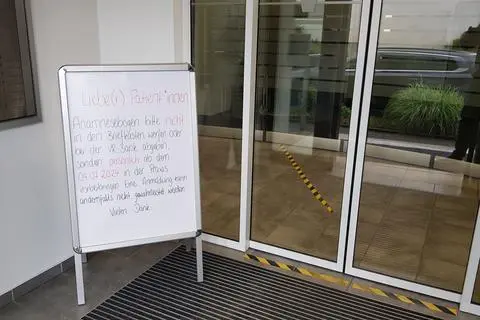 Liebe(r) Patient*innen
Anamnesebögen bitte nicht
in den Briefkasten werfen oder
bei der VR Bank abgeben,
sondern persönlich ab dem
04.07.2024 in der Praxis
vorbeibringen. Eine Anmeldung kann
andernfalls nicht gewährleistet werden
Vielen Dank